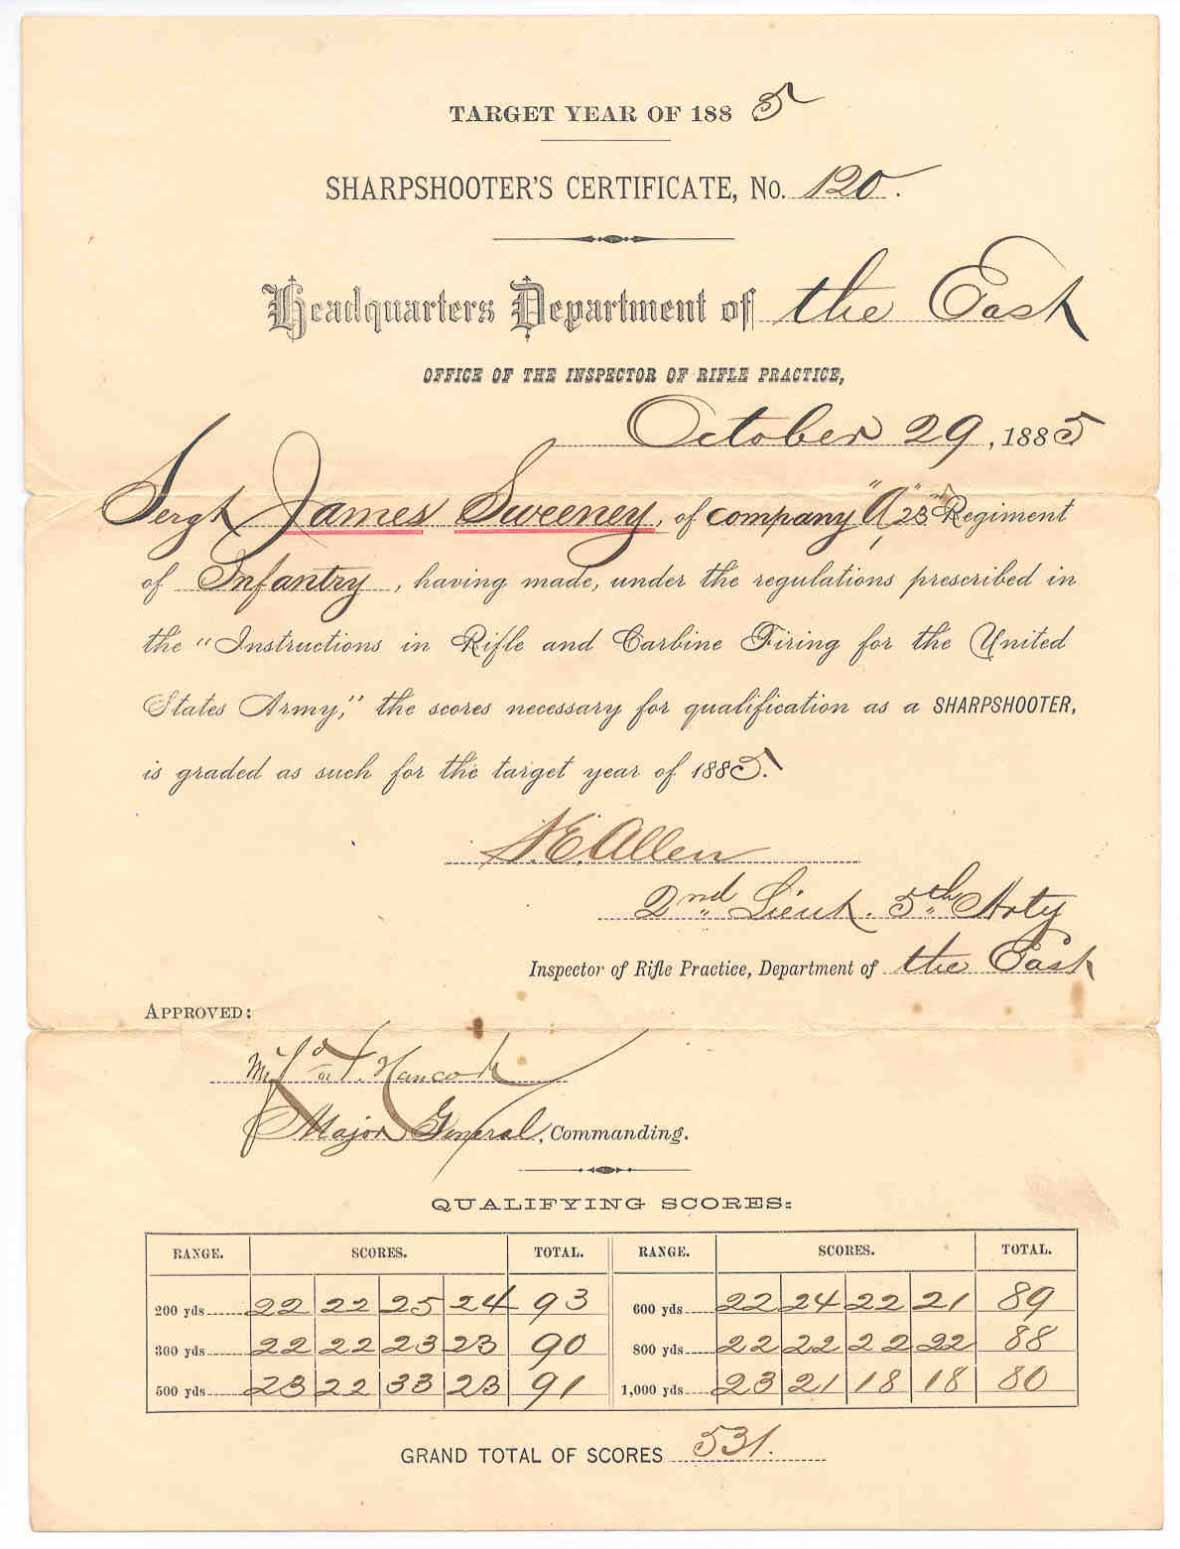 TARGET YEAR OF 1885
SHARPSHOOTER'S CERTIFICATE, No. 120.
Headquarters Department of the East
OFFICE OF THE INSPECTOR OF RIFLE PRACTICE,
October 29, 1885
Sergt James Sweeney, of company "A" 23rd Regiment
of Infantry, having made, under the regulations prescribed in
the "Instructions in Rifle and Carbine Firing for the United
States Army," the scores necessary for qualification as a SHARPSHOOTER,
is graded as such for the target year of 1885.
S.E. Allen
2nd Lieut. 5th Arty
Inspector of Rifle Practice, Department of the East
APPROVED:
Hancock
Major General, Commanding.
QUALIFYING SCORES:
RANGE. SCORES. TOTAL. RANGE. SCORES. TOTAL.
200 yds 22 22 25 24 93 600 yds 22 24 22 21 89
300 yds 22 22 23 23 90 800 yds 22 22 22 22 88
500 yds 23 22 33 23 91 1,000 yds 23 21 18 18 80
GRAND TOTAL OF SCORES 531.